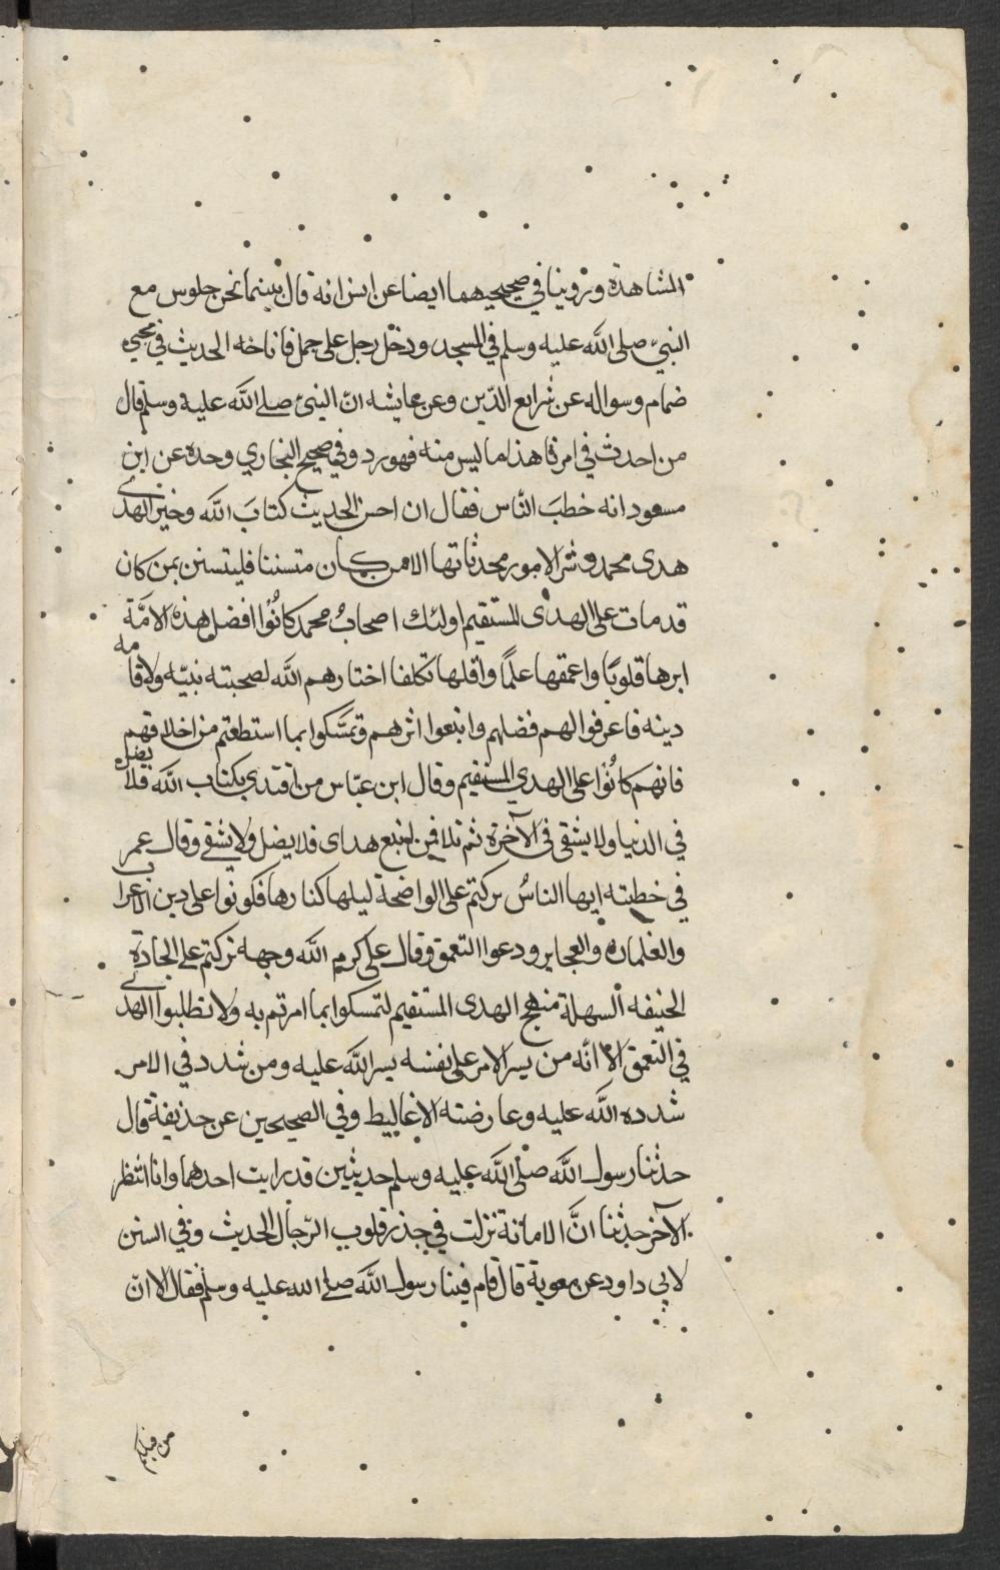 المشاهدة وروينا في صحيحيهما ايضا عن انس انه قال بينما نحن جلوس مع
النبيّ صلى الله عليه وسلم في المسجد ودخل رجل على جمل فاناخه الحديث في مجيي
ضمام وسواله عن شرايع الدّين وعن عايشه انّ النبيّ صلى الله عليه وسلم قال
من احدث في امرنا هذا ما ليس منه فهو رد وفي صحيح البخاري وحده عن ابن
مسعود انه خطبَ النّاس فقال ان احسن الحديث كتابَ الله وخير الهدى
هدى محمد وشر الامور محدثاتها الا من كان متسننا فليتسنن بمن كان
قد مات على الهدى المستقيم اولئك اصحابُ محمد كانُوا افضل هذه الامّة
ابرها قلوبًا واعمقها علمًا واقلها تكلفا اختارهم الله لصحبته نبيّه ولاقامه
دينه فاعرفوا لهم فضلهم واتبعوا اثرهم وتمسَّكوا بما استطعتم من اخلاقهم
فانهم كانُوا على الهدي المستقيم وقال ابن عبّاس من اقتدي بكتاب الله فلا يضل
في الدنيا ولا يشقى في الآخرة ثم تلا فمن اتبع هداى فلا يضل ولا يشقى وقال عمر
في خطبته ايها الناسُ تركتم على الواضحة ليلها كنهارها فكونوا على دين الاعراب
والغلمان والعجايز ودعوا التعمق وقال على كرم الله وجهه تركتم على الجادة
الحنيفه السهلة منهج الهدى المستقيم لتمسكوا بما امرتم به ولا تطلبوا الهدى
في التعمق الا انّه من يسر الامر على نفسه يسر الله عليه ومن شدد في الامر
شدده الله عليه وعارضته الاغاليط وفي الصحيحين عن حذيفة قال
حدثنا رسول الله صلى الله عليه وسلم حديثين قد رايت احدهما وانا انتظر
الآخر حدثنا انّ الامانة نزلت في جذر قلوب الرّجال الحديث وفي السنن
لابي داود عن معوية قال قام فينا رسول الله صلى الله عليه وسلم فقال الا انّ
من قبلكم